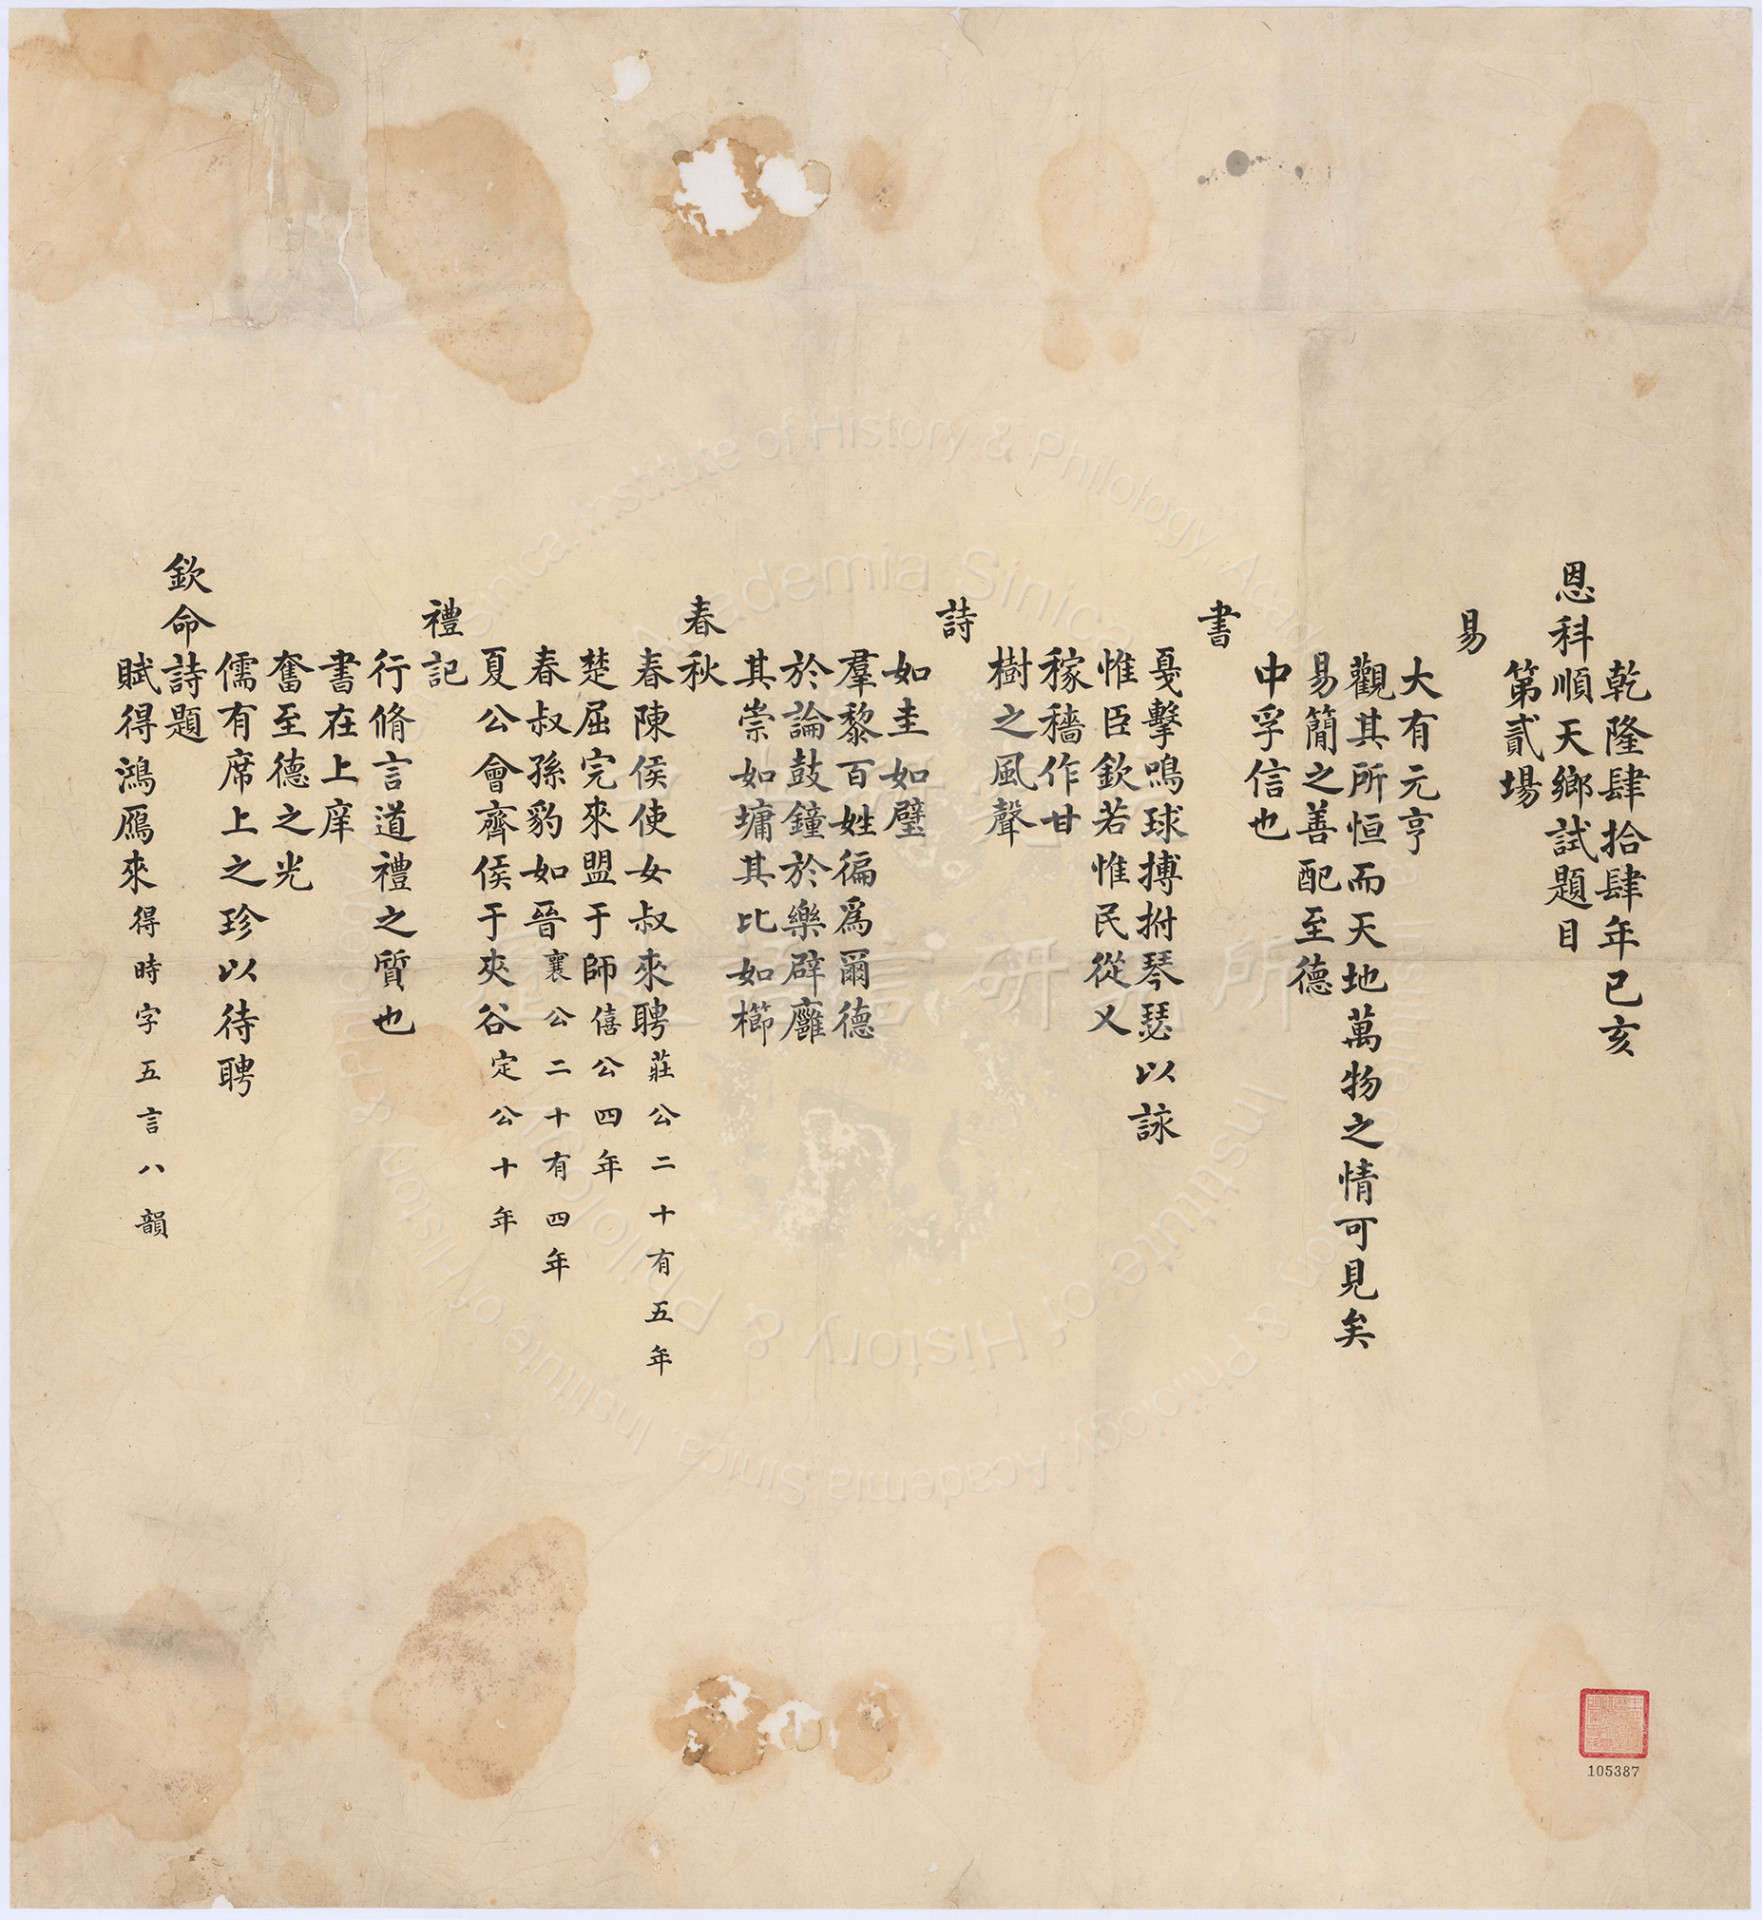 乾隆肆拾肆年己亥
恩科順天鄉試題目
第貳場
易
大有元亨
觀其所恒而天地萬物之情可見矣
易簡之善配至德
中孚信也
書
戛擊鳴球搏拊琴瑟以詠
惟臣欽若惟民從乂
稼穡作甘
樹之風聲
詩
如圭如璧
羣黎百姓徧爲爾德
於論鼓鐘於樂辟廱
其崇如墉其比如櫛
春秋
春陳侯使女叔來聘莊公二十有五年
楚屈完來盟于師僖公四年
春叔孫豹如晉襄公二十有四年
夏公會齊侯于夾谷定公十年
禮記
行脩言道禮之質也
書在上庠
奮至德之光
儒有席上之珍以待聘
欽命詩題
賦得鴻鴈來得時字五言八韻
105387
Academia Sinica
Institute of History & Philology, Academia Sinica